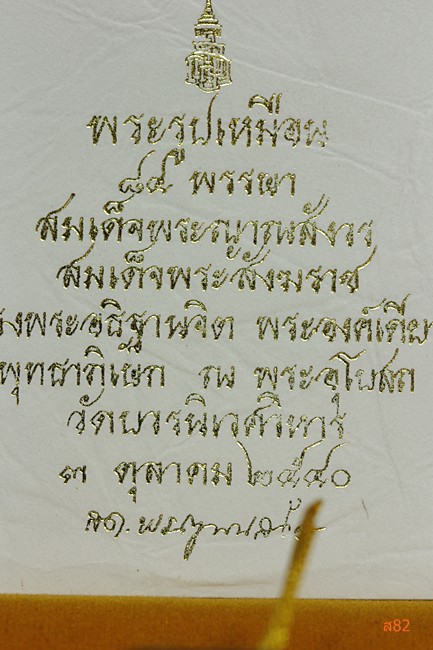 พระรูปเหมือน
๘๔ พรรษา
สมเด็จพระญาณสังวร
สมเด็จพระสังฆราช
รงพระอธิฐานจิต พระองค์เดีย
พุทธาภิเษก ณ พระอุโบสถ
วัดบวรนิเวศวิหาร
๓ ตุลาคม ๒๕๔๐
ส82